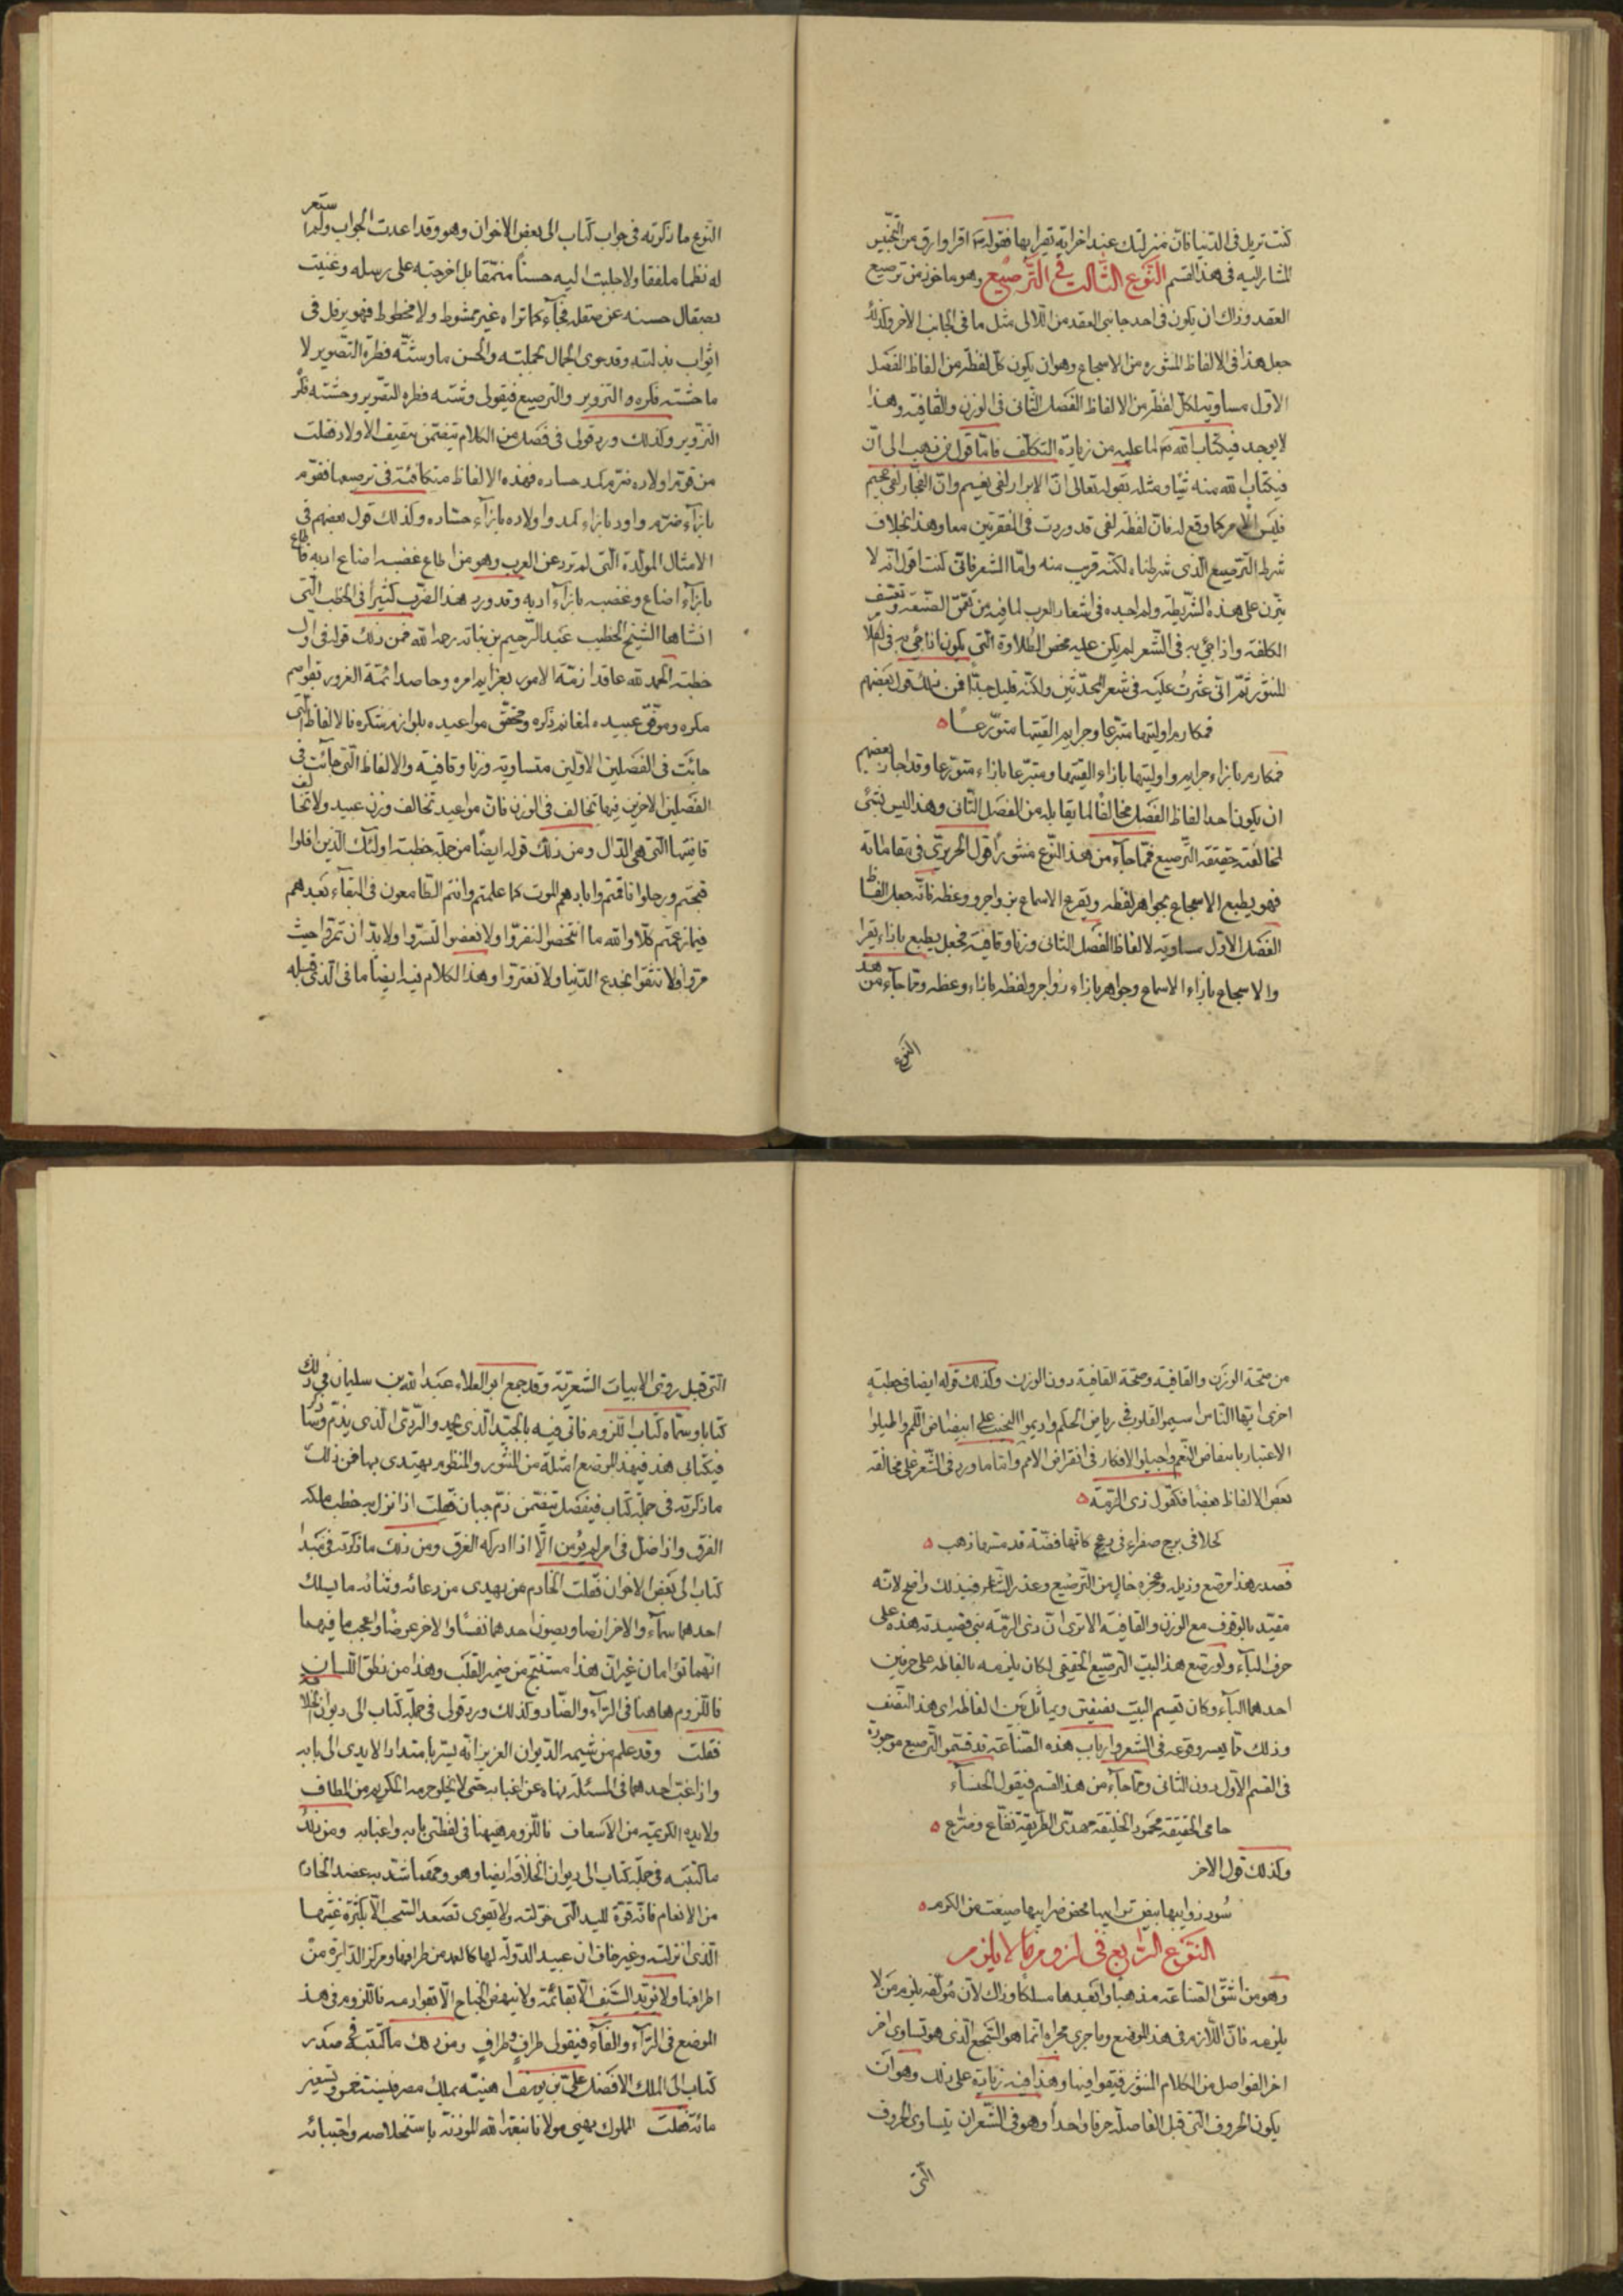 كنت تريل فى الدنيا فان منزلتك عند اخر اية تقرا بها فقوله اقرا وارق من التجنيس
المشار اليه فى هذا القسم النوع الثالث في الترصيع وهو ماخوذ من ترصيع
العقد وذاك ان يكون فى احد جانبى العقد من اللالى مثل ما فى الجانب الاخر وكذلك
جعل هذا فى الالفاظ المنثوره من الاسجاع وهو ان يكون كل لفظة من الفاظ الفصل
الاول مساوية لكل لفظة من الالفاظ الفصل الثانى فى الوزن والقافية وهذا
لا يوجد فى كتاب الله لما عليه من زيادة التكلف فاما قول من ذهب الى ان
فى كتاب الله منه شيا ومثله بقوله تعالى ان الابرار لفى نعيم وان الفجار لفى جحيم
فليس الامر كما وقع له فان لفظة لفى قد وردت فى الفقرتين معا وهذا بخلاف
شرط الترصيع الذى شرطناه لكنه قريب منه واما الشعر فانى كنت اقول انه لا
يتزن على هذه الشريطة ولم اجده فى اشعار العرب لما فيه من تعمق الصنعة وتعسف
الكلفة واذا جئ به فى الشعر لم يكن عليه محض الطلاوة التى يكون اذا جئ به فى الكلام
المنثور ثم انى عثرت عليه فى شعر المحدثين ولكنه قليل جدا فمن ذلك قول بعضهم
فمكارم اوليتها متبرعا وجرايم القيتها متورعا
فمكارم بازاء جرايم واوليتها بازاء القيتها ومتبرعا بازاء متورعا وقد اجاز بعضهم
ان يكون احد الفاظ الفصل مخالفا لما يقابله من الفصل الثانى وهذا ليس بشئ
لمخالفته حقيقة الترصيع فمما جآء من هذا النوع منثورا قول الحريرى فى مقاماته
فهو يطبع الاسجاع بجواهر لفظه ويقرع الاسماع بزواجر وعظه فانه جعل الفاظ
الفصل الاول مساوية لالفاظ الفصل الثانى وزنا وقافية فجعل يطبع بازاء يقرا
والاسجاع بازاء الاسماع وجواهر بازاء زواجر ولفظه بازاء وعظه ومما جآء من هذا
النوع
النوع ما ذكرته فى جواب كتاب الى بعض الاخوان وهو وقد اعدت الجواب ولم استعر
له نظما ملفقا ولا جلبت اليه حسنا منمقا بل اخرجته على رسله وغنيت
بصقال حسنه عن صقله فجآء كما تراه غير ممشوط ولا مخطوط فهو يرفل فى
اثواب بذلته وقد حوى الجمال بجملته والحسن ما وشته فطرة التصوير لا
ما حشته فكره التزوير والترصيع فى قولى وشته فطره التصوير وحشته فكر
التزوير وكذلك ورد قولى فى فصل من الكلام يتضمن تثقيف الاولاد فقلت
من قوم اولاده ضرم كمد حساده فهذه الالفاظ متكافئة فى ترصيعها فقوم
بازآء ضرم واود بازاء كمد واولاده بازآء حساده وكذلك قول بعضهم فى
الامثال المولدة التى لم ترد عن العرب وهو من اطاع غضبه اضاع ادبه فاطاع
بازآء اضاع وغضبه بازآء ادبه وقد ورد هذا الضرب كثيرا فى الخطب التى
انشاها الشيخ الخطيب عبد الرحيم بن نباته رحمه الله فمن ذلك قوله فى اول
خطبة الحمد لله عاقد ازمة الامور بعزايم امره وحاصد ائمة الغرور بقواصم
مكره وموفق عبيده لمغانم ذكره ومحقق مواعيده بلوازم شكره فالالفاظ التى
جائت فى الفصلين الاولين متساوية وزنا وقافية والالفاظ التى جائت فى
الفصلين الاخرين فيها تخالف فى الوزن فان مواعيد تخالف وزن عبيد ولا تخالف
قافيتها التى هى الدال ومن ذلك قوله ايضا من جملة خطبة اولئك الذين افلوا
فنجمتم ورحلوا فاقمتم وابادهم الموت كما علمتم وانتم الطامعون فى البقآء بعدهم
فيما زعمتم كلا والله ما اشخصوا لتقروا ولا نغصوا لتسروا ولا بد ان تمروا حيث
مروا فلا تثقوا بخدع الدنيا ولا تغتروا وهذا الكلام فيه ايضا ما فى الذى قبله
من صحة الوزن والقافية وصحة القافية دون الوزن وكذلك قوله ايضا فى خطبة
اخرى ايها الناس اسيموا القلوب فى رياض الحكم واديموا النحيب على ابيضاض اللمم واطيلوا
الاعتبار بانتقاض النعم واجيلوا الافكار فى انقراض الامم واما ما ورد فى الشعر على مخالفة
بعض الالفاظ بعضا فكقول ذى الرمة
كحلا فى برج صفراء فى دعج كانها فضة قد مسها ذهب
فصدر هذا مرصع وذيله وعجزه خال من الترصيع وعذر الشاعر فى ذلك واضح لانه
مقيد بالوقوف مع الوزن والقافية الا ترى ان ذى الرمة بنى قصيدته هذه على
حرف البآء ولو رصع هذا البيت الترصيع الحقيقى لكان يلزمه بالفاظه على حرفين
احدهما البآء وكان يقسم البيت نصفين ويماثل بين الفاظه اى هذا النصف
وذلك مما يعسر وقوعه فى الشعر وارباب هذه الصناعة قد قسموا الترصيع موجودة
فى القسم الاول دون الثانى ومما جآء من هذا القسم فى قول الخنسآء
حامى الحقيقة محمود الخليقة مهدى الطريقة نفاع وضرّاع
وكذلك قول الاخر
سُود ذوايبها بيض ترايبها محض ضرايبها صيغت من الكرم
النوع الرابع فى لزوم ما لا يلزم
وهو من اشق الصناعة مذهبا وابعدها مسلكا وذاك لان مؤلفه يلزم ما لا
يلزمه فان اللازم فى هذا الموضع وما جرى مجراه انما هو السجع الذى هو تساوى اخر
اخر الفواصل من الكلام المنثور فى قوافيها وهذا فيه زيادة على ذلك وهو ان
يكون الحروف التى قبل الفاصلة حرفا واحدا وهو فى الشعر ان يتساوى الحروف
التى
التى قبل روى الابيات الشعرية وقد جمع ابو العلاء عبد الله بن سليمان فى ذلك
كتابا وسماه كتاب اللزوم فاتى فيه بالجيد الذى يحمد والردى الذى يذم وساذكر
فى كتابى هذا فى هذا الموضع امثلة من المنثور والمنظوم يهتدى بها فمن ذلك
ما ذكرته فى جملة كتاب فى فصل يتضمن ذم جبان فقلت اذا نزل به خطب ملكه
الفرق واذا ضل فى امر لم يؤمن الا اذا ادركه الغرق ومن ذلك ما ذكرته فى مبدا
كتاب الى بعض الاخوان فقلت الخادم من يهدى من دعائه وثنائه ما يسلك
احدهما سمآء والاخر ارضا ويصون احدهما نفسا والاخر عرضا واعجب ما فيهما
انهما توامان غير ان هذا مستنتج من ضمير القلب وهذا من نطق اللسان
فاللزوم هاهنا فى الرآء والضاد وكذلك ورد قولى فى جملة كتاب الى ديوان الخلافة
فقلت وقد علم من شيمه الديوان العزيز انه يسر بامتداد الايدى الى بابه
واذا غب احدهما فى المسئلة نهاه عن اغبابه حتى لا يخلو حرمه الكريم من المطاف
ولا يده الكريمة من الاسعاف فاللزوم هيهنا فى لفظتى بابه واغبابه ومن ذلك
ما كتبته فى جملة كتاب الى ديوان الخلافة ايضا وهو ومهما شد به عضد الخادم
من الانعام فانه قوة لليد التى خولته ولا يقوى تصعد السحب الا بكثرة غيثها
الذى انزلته وغير خاف ان عبيد الدولة لها كالعمد من طرافها ومركز الدايرة من
اطرافها ولا يؤيد السيف الا بقائمه ولا ينهض الجناح الا بقوادمه فاللزوم فى هذا
الموضع فى الرآء والفآء فى قولى طراف واطراف ومن ذلك ما كتبته فى صدر
كتاب الى الملك الافضل على بن يوسف اهنيه بملك مصر فى سنة خمس وتسعين
مائة فقلت المملوك يهنى مولانا بنعمة الله المؤذنة باستخلاصه واجتبائه